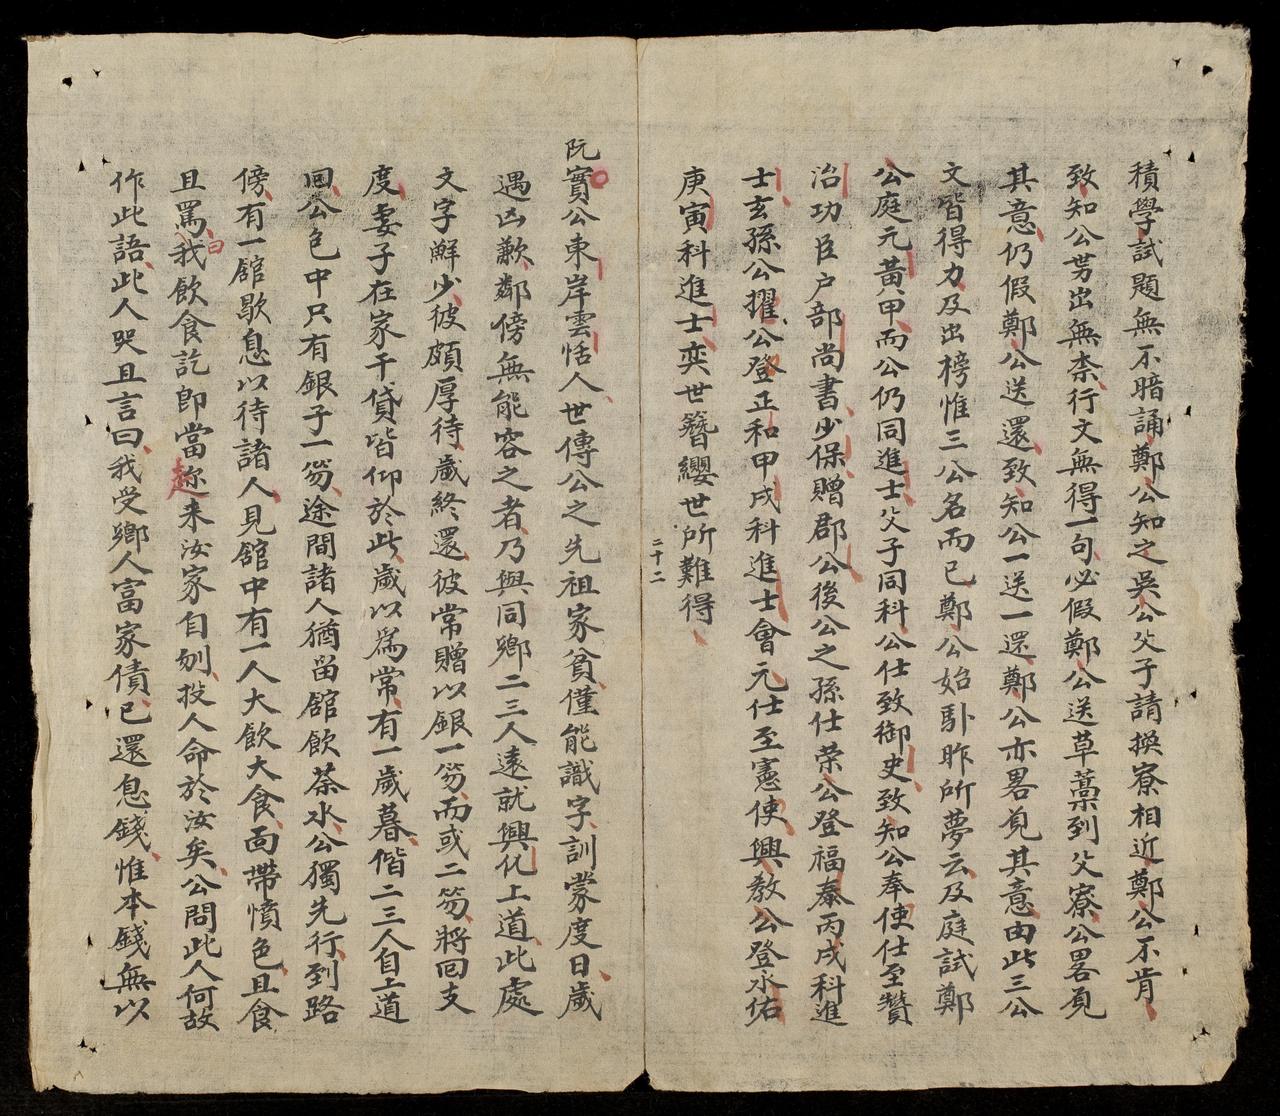 積學試題無不暗誦鄭公知之吳公父子請換寮相近鄭公不肯
致知公势出無柰行文無得一句必假鄭公送草藁到父寮公畧覓
其意仍假鄭公送還致知公一送一還鄭公亦畧覓其意由此三公
文皆得力及出榜惟三公名而已鄭公始卧昨所夢云及庭試鄭
公庭元黃甲而公仍同進士父子同科公仕致御史致知公奉使仕至贊
治功臣户部尚書少保贈郡公後公之孫仕荣公登福泰丙戌科進
士玄孫公擢公登正和甲戌科進士會元仕至憲使興教公登永佑
庚寅科進士奕世簪纓世所難得
二十二
阮實公東岸雲恬人世傳公之先祖家貧僅能識字訓蒙度日歲
遇凶歉鄰傍無能容之者乃與同鄉二三人遠就興化上道此處
文字鮮少彼頗厚待歲終還彼常贈以銀一笏而或二笏將回支
度妻子在家干貸皆仰於此歲以爲常有一歲暮偕二三人自上道
回公包中只有銀子一笏途間諸人猶留舘飲茶水公獨先行到路
傍有一舘歇息以待諸人見舘中有一人大飲大食面帶憤色且食
且罵曰我飲食訖即當趂来汝家自刎投人命於汝矣公問此人何故
作此語此人哭且言曰我受鄉人富家債已還息錢惟本錢無以